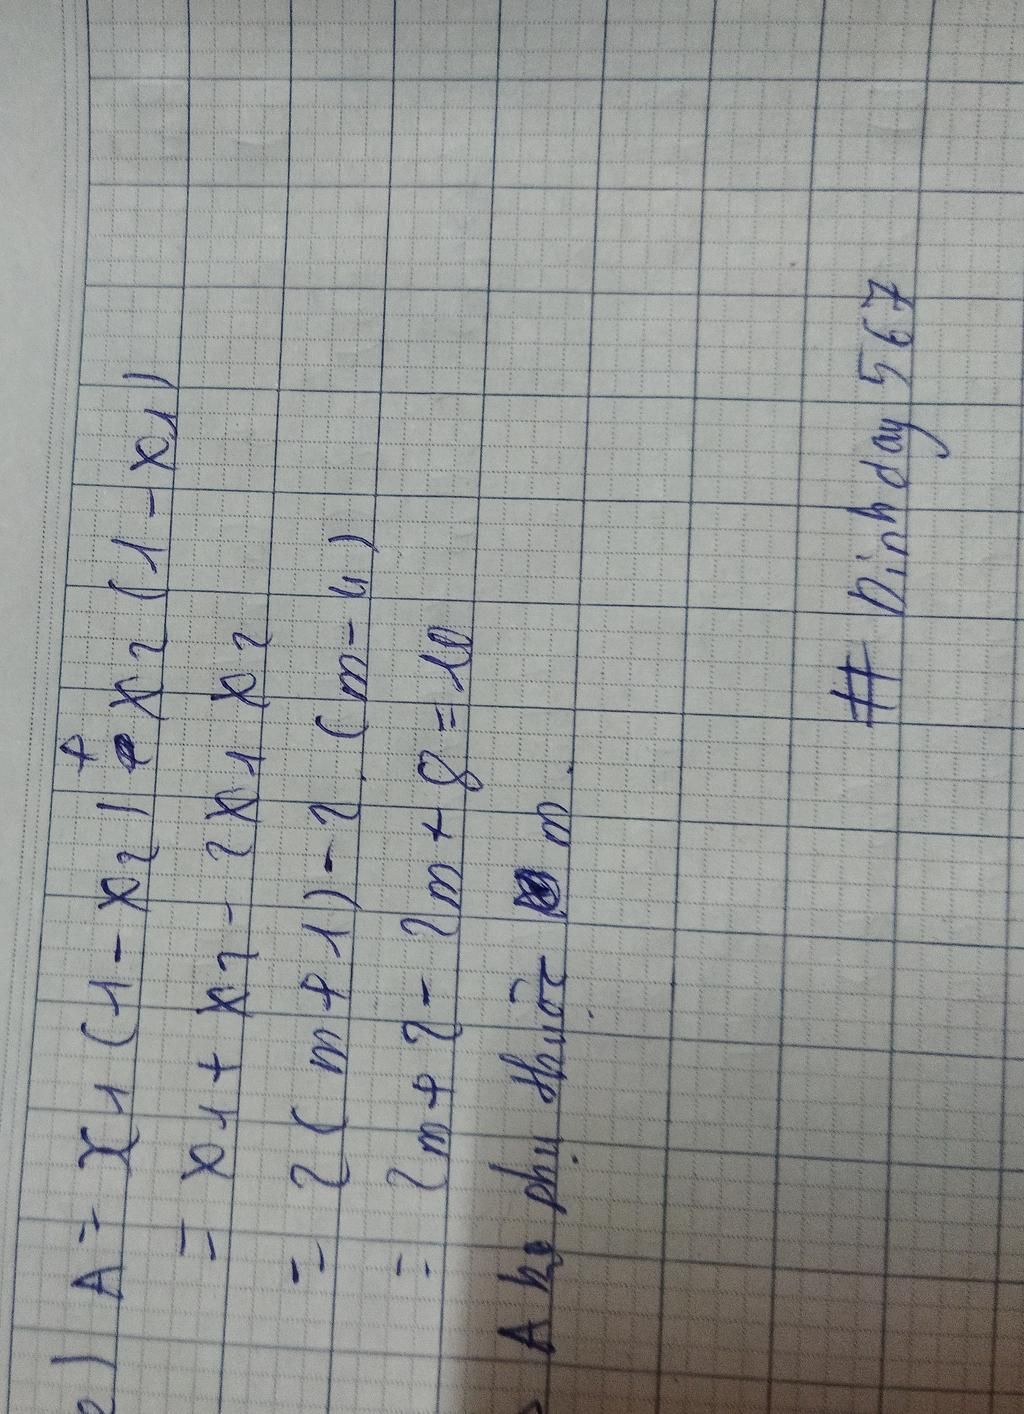 c) A = x1 (1 - x2) + x2 (1 - x1)
= x1 + x2 - 2x1 x2
= 2 ( m + 1 ) - 2 . (m - 4)
= 2m + 2 - 2m + 8 = 10
=> A ko phụ thuộc m.
# Dinhday 567